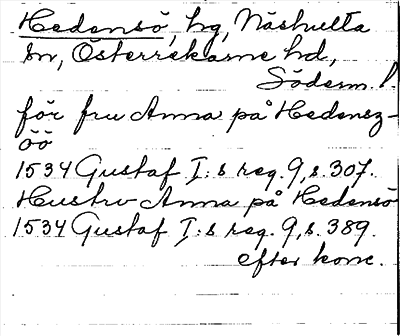 Hedensö, hg, Näshulta
sn, Österrekarne hd,
Söderm. l.
för fru Anna på Hedensz-
öö
1534 Gustaf I:s reg. 9, s. 307.
Hustro Anna på Hedensö
1534 Gustaf I:s reg. 9, s. 389.
efter konc.